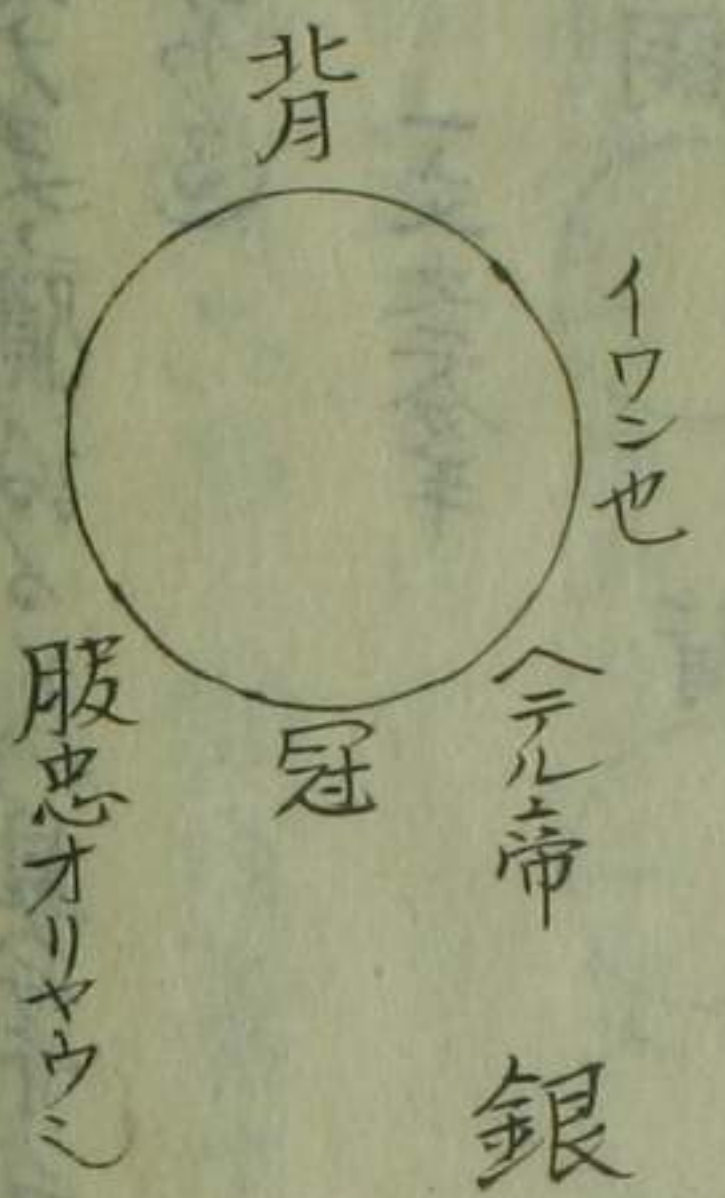 背
イワン也
ヘテル帝
冠
服忠オリヤウシ
銀